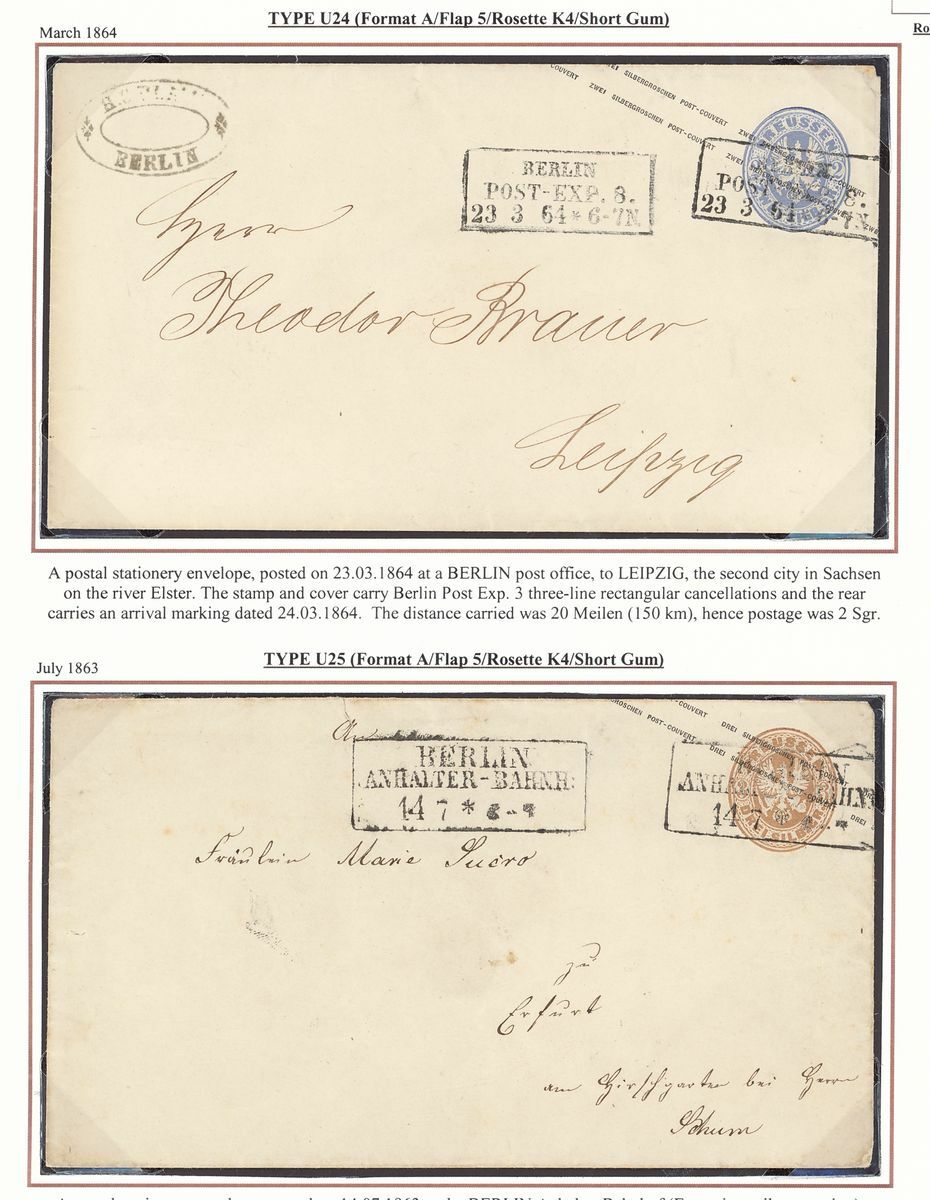 TYPE U24 (Format A/Flap 5/Rosette K4/Short Gum)
Ro
March 1864
COUVERT ZWEI SILBERGROSCHEN POST-COUVERT ZWEI
ZWEI SILBERGROSCHEN POST-COUVERT ZWEI
PREUSSEN
BERLIN
BERLIN
POST-EXP. 8.
23 3 64 * 6-7N.
POST 8.
23 3 64 -7N.
Herr
Theodor Brauer
Leipzig
A postal stationery envelope, posted on 23.03.1864 at a BERLIN post office, to LEIPZIG, the second city in Sachsen
on the river Elster. The stamp and cover carry Berlin Post Exp. 3 three-line rectangular cancellations and the rear
carries an arrival marking dated 24.03.1864. The distance carried was 20 Meilen (150 km), hence postage was 2 Sgr.
TYPE U25 (Format A/Flap 5/Rosette K4/Short Gum)
July 1863
SILBERGROSCHEN POST-COUVERT DREI SILBERGROSCHEN POST-COUVERT
POST-COUVERT DREI SILBERGROSCHEN POST-COUVERT DREI
PREUSSEN
An
BERLIN
ANHALTER-BAHNH:
14 7 *
14 7
Fräulein Marie Sucro
zu
Erfurt
am Hirschgarten bei Herrn
Schum